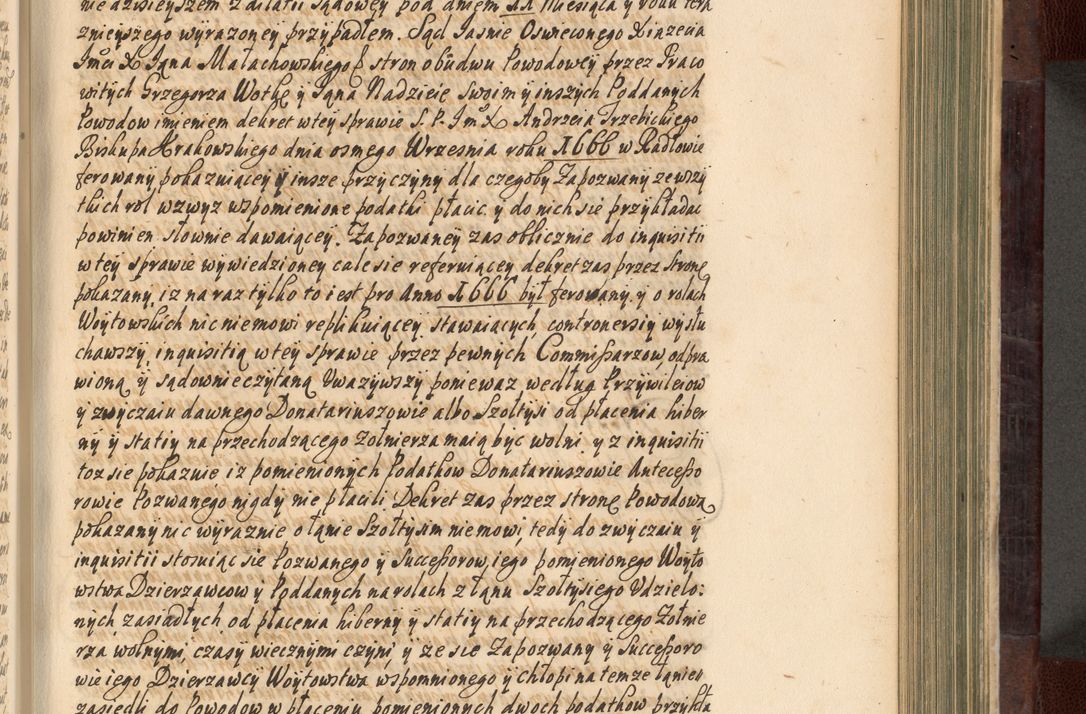 nie dzisieyszem z dilatii sądowey pod dniem 11 Miesiąca y roku tera
znieyszego wyrazoney przypadłem. Sąd Jasnie Oswieconego Xiązecia
Jmci X Jana Małachowskiego &c stron obudwu Powodowey przez Praco
witych Grzegorza Wotkę y Jana Nadzieię swoim y inszych Poddanych
Powodow imieniem dekret w tey sprawie S. P. Jm X Andrzeia Trzebickiego
Biskupa Krakowskiego dnia osmego Wrzesnia roku 1666 w Radłowie
ferowany pokazuiącey y insze przyczyny dla czegoby Zapozwany ze wszy
tkich rol wzwyz wspomienione podatki płacic y do nich sie przykładac
powinien słownie dawaiącey. Zapozwaney zas oblicznie do inquisitii
w tey sprawie wywiedzioney cale sie referuiącey dekret zas przez Stronę
pokazany, iz na raz tylko to iest pro Anno 1666 był ferowany, y o rolach
Woytowskich nic nie mowi replikuiącey stawaiących, controuersiy wysłu
chawszy, inquisitią w tey sprawie przez pewnych Commissarzow, odpra
wioną y sądownie czytaną Uwazywszy poniewaz według Przywileiow
y zwyczaiu dawnego Donatariuszowie albo Szołtysi od płacenia hiber
ny y statiy na przechodzącego zołnierza maią byc wolni y z inquisitii
toz sie pokazuie iz pomienionych Podatkow Donatariuszowie Antecesso
rowie Pozwanego nigdy nie płacili Dekret zas przez stronę Powodową
pokazany nic wyraznie o łanie Szołtysim nie mowi, tedy do zwyczaiu y
inquisitii stosuiąc sie Pozwanego y Successorow, iego pomienionego Woyto
wstwa Dzierzawcow y Poddanych na rolach z łanu Szołtysiego Udzielo:
nych zasiadłych od płacenia hiberny y statiy na przechodzącego Zołnie
rza wolnymi, czasy wiecznymi czyni, y ze sie Zapozwany y Successoro
wie iego Dzierzawcy Woytowstwa wspomnionego y chłopi na temze łanie
zasiedli do Powodow w płaceniu pomienionych dwoch podatkow przykła